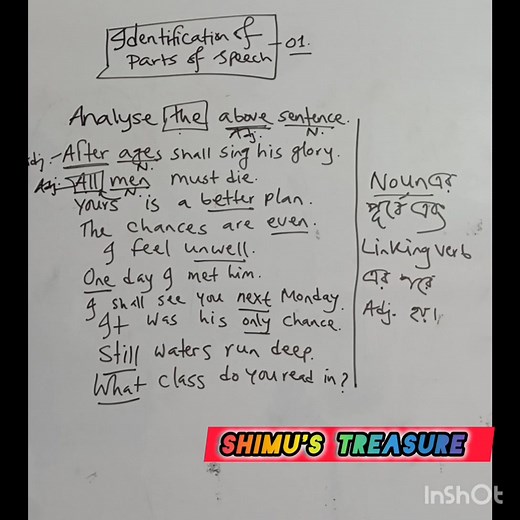 Identification of
Parts of Speech
01.
Analyse the above sentence.
Adj. N.
Adj. - After ages shall sing his glory.
N.
Adj. - All men must die.
N.
Yours is a better plan.
The chances are even.
I feel unwell.
One day I met him.
I shall see you next Monday.
It was his only chance.
Still waters run deep.
What class do you read in?
Noun এর
পূর্বে এবং
Linking verb
এর পরে
Adj. হয়।
SHIMU'S TREASURE
InShOt